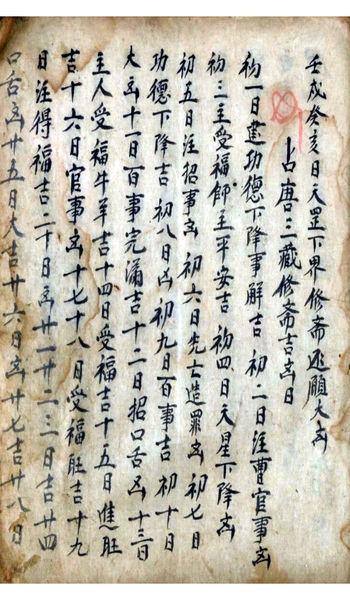 壬戌癸亥日天罡下界修斋还願大凶
占唐三藏修斋吉凶日
初一日建功德下降事解吉 初二日注曹官事凶
初三主受福師主平安吉 初四日天星下降凶
初五日注招事凶 初六日先亡造罪凶 初七日
功德下降吉 初八日凶 初九日百事吉 初十日
大凶十一日百事完滿吉十二日招口舌凶 十三日
主人受福牛羊吉十四日受福吉十五日進旺
吉十六日官事凶十七十八日受福旺吉十九
日注得福吉二十日凶廿一廿二三日吉廿四
口舌凶廿五日大吉廿六日凶廿七吉廿八日